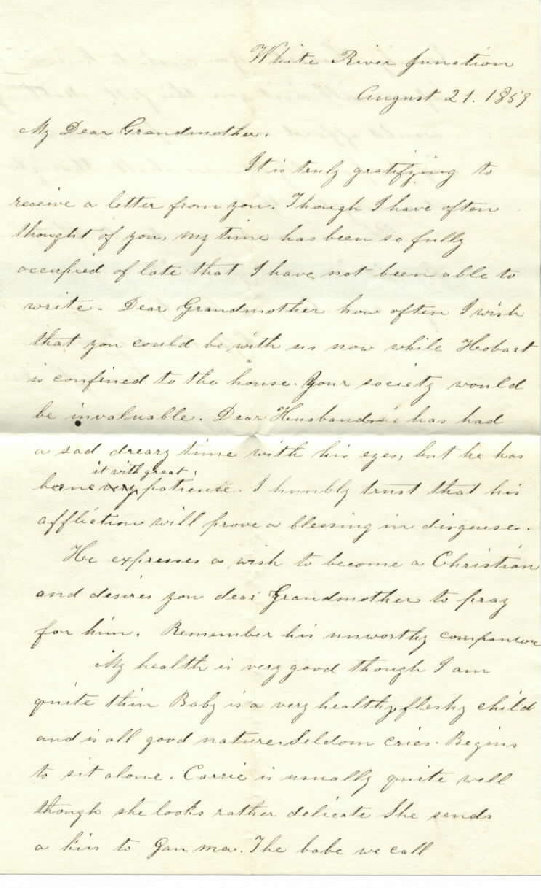 White River Junction
August 21. 1859
My Dear Grandmother.
It is truly gratifying to
receive a letter from you. Though I have often
thought of you my time has been so fully
occupied of late that I have not been able to
write. Dear Grandmother how often I wish
that you could be with us now while Hobart
is confined to the house. Your society would
be invaluable. Dear Husband has had
a sad dreary time with his eyes, but he has
it with great
borne patience. I humbly trust that his
affliction will prove a blessing in disguise.
He expresses a wish to become a Christian
and desires you dear Grandmother to pray
for him. Remember his unworthy companion
My health is very good though I am
quite thin Baby is a very healthy, fleshy child
and is all good nature. Seldom cries. Begins
to sit alone. Carrie is usually quite well
though she looks rather delicate She sends
a kiss to Gan ma. The babe we call